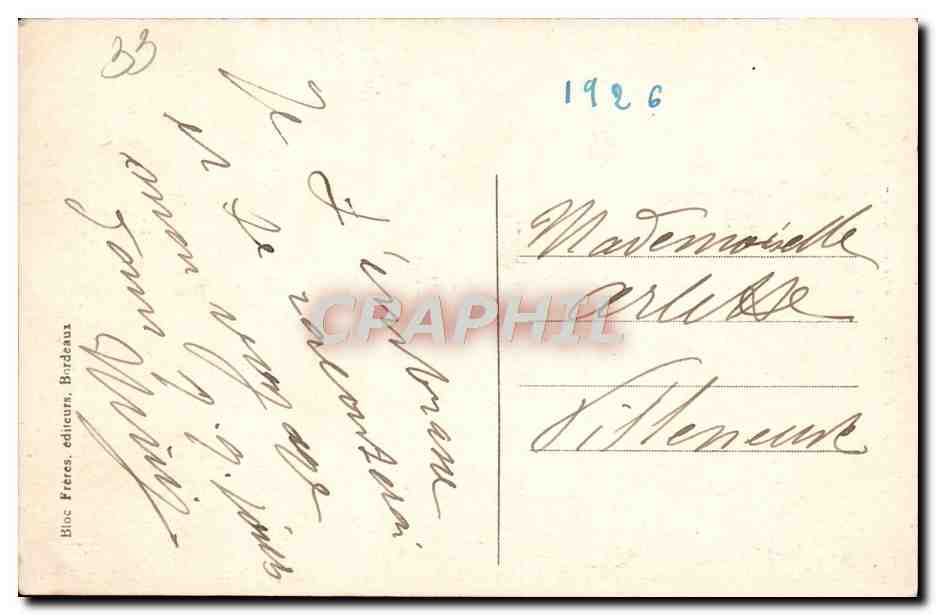 33
1926
Je t'embrasse
et te raconterai
mon voyage
q.q. jours
Ton
Mademoiselle
Arlette
Villeneuve
Bloc Frères, éditeurs, Bordeaux
CRAPHIL